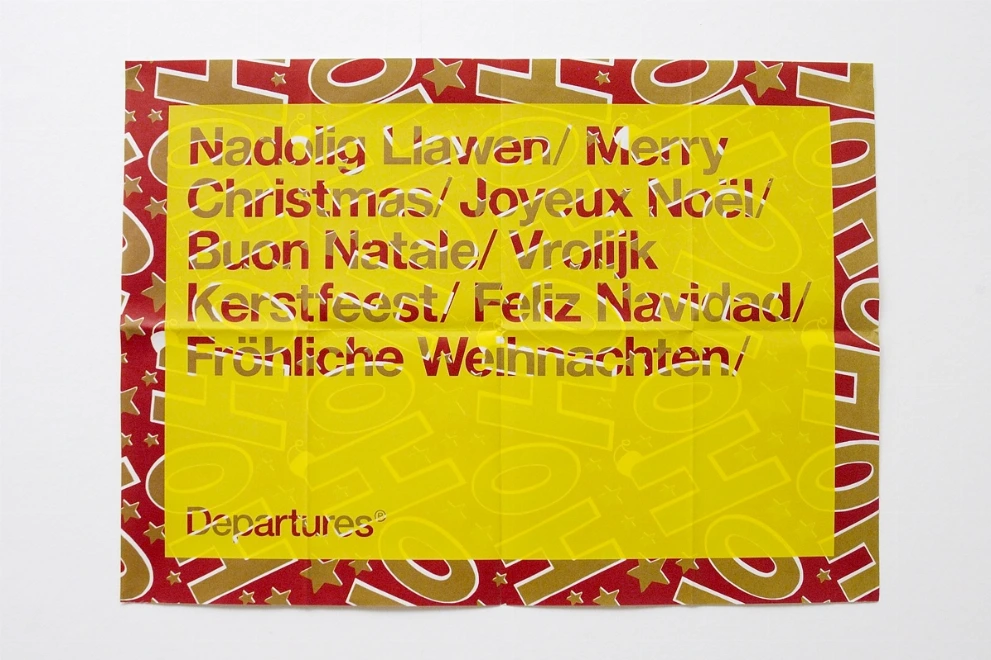 Nadolig Llawen/ Merry
Christmas/ Joyeux Noël/
Buon Natale/ Vrolijk
Kerstfeest/ Feliz Navidad/
Fröhliche Weihnachten/
Departures®